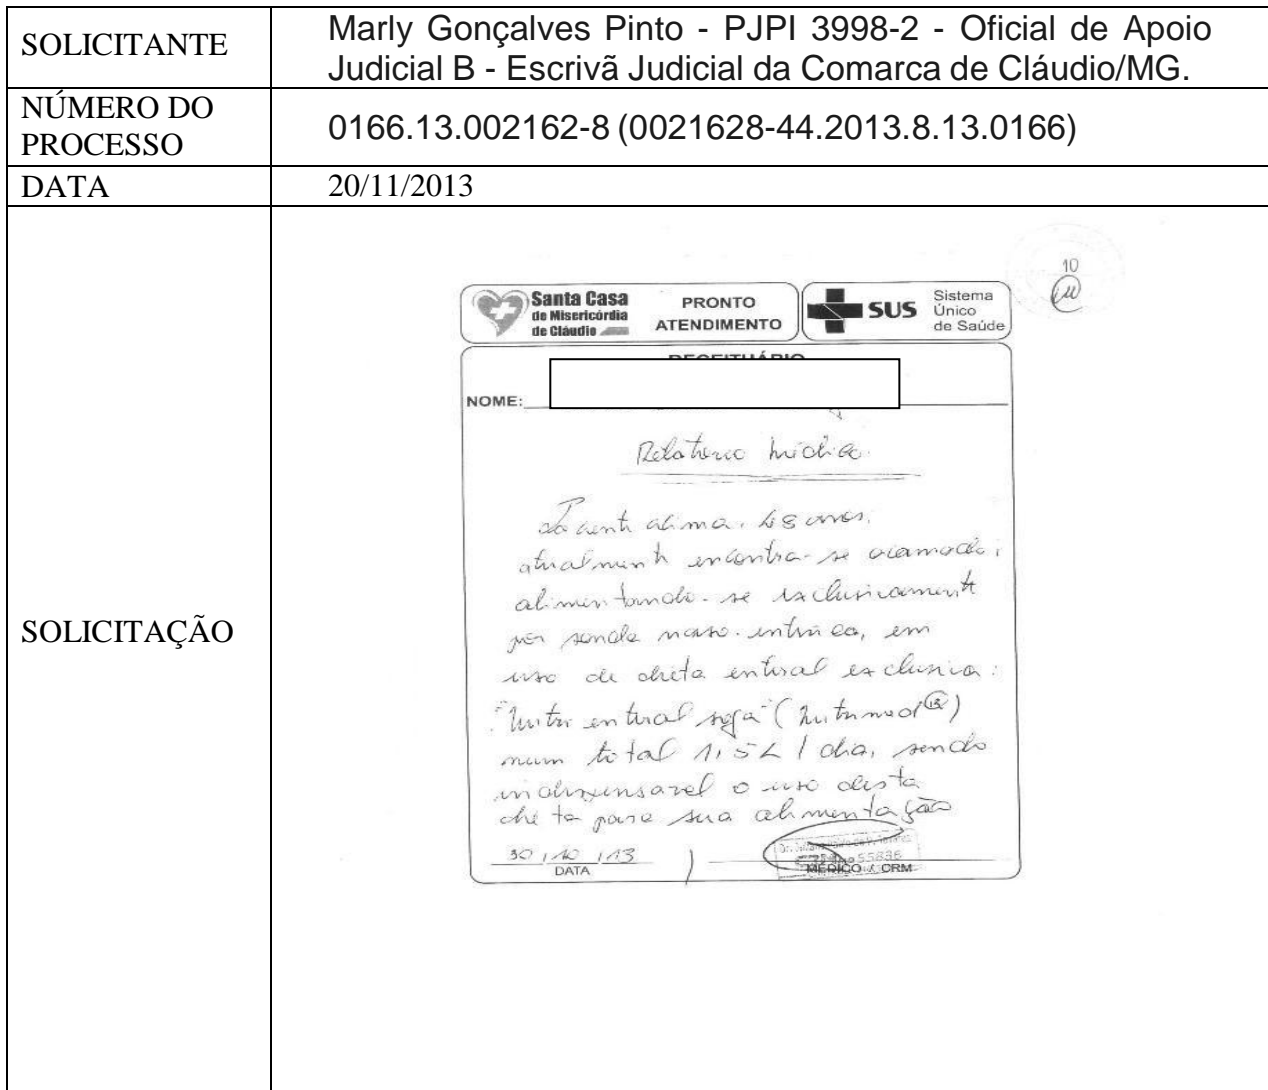 SOLICITANTE
Marly Gonçalves Pinto - PJPI 3998-2 - Oficial de Apoio
Judicial B - Escrivã Judicial da Comarca de Cláudio/MG.
NÚMERO DO
PROCESSO
0166.13.002162-8 (0021628-44.2013.8.13.0166)
DATA
20/11/2013
SOLICITAÇÃO
10
Santa Casa
de Misericórdia
de Cláudio
PRONTO
ATENDIMENTO
SUS
Sistema
Único
de Saúde
RECEITUÁRIO
NOME:
Relatório Médico
Paciente acima, 48 anos,
atualmente encontra-se acamado,
alimentando-se exclusivamente
por sonda naso-entérica, em
uso de dieta enteral exclusiva:
"Nutri enteral soja" (Nutrimed®)
num total 1,5L / dia, sendo
indispensável o uso desta
dieta para sua alimentação
30/10/13
DATA
55836
MÉDICO / CRM